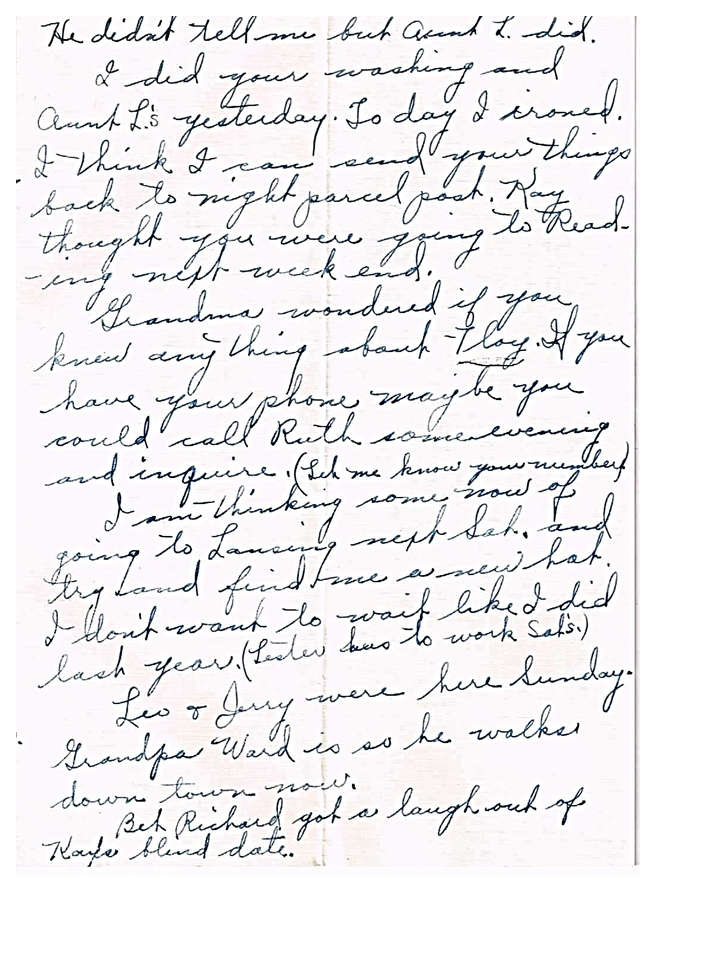 He didn't tell me but Aunt L. did.
I did your washing and
Aunt L.'s yesterday. To day I ironed.
I think I can send your things
back to night parcel post. Kay
thought you were going to Read-
-ing next week end.
Grandma wondered if you
knew any thing about Floy. If you
have your phone maybe you
could call Ruth some evening
and inquire. (Let me know your number)
I am thinking some now of
going to Lansing next Sat. and
try and find me a new hat.
I don't want to wait like I did
last year. (Lester has to work Sat's.)
Leo & Jerry were here Sunday.
Grandpa Ward is so he walks
down town now.
Bet Richard got a laugh out of
Kay's blind date.